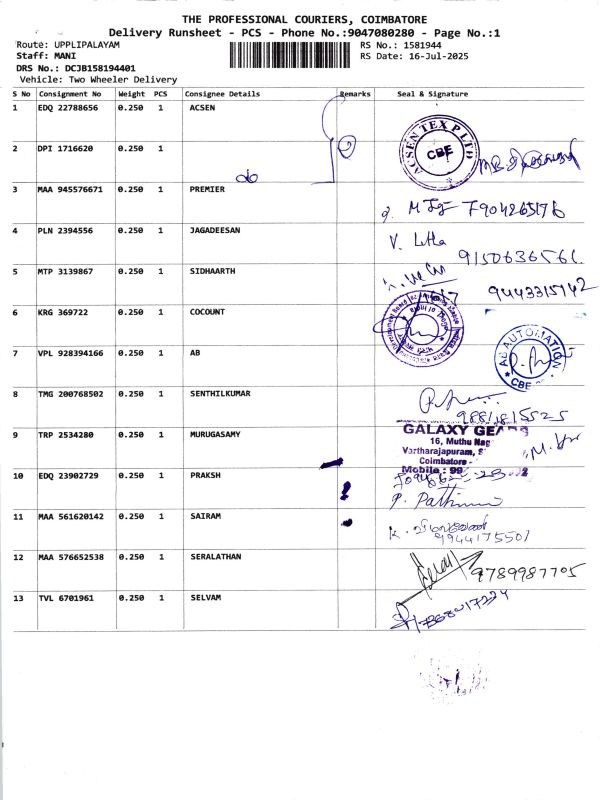 THE PROFESSIONAL COURIERS, COIMBATORE
Delivery Runsheet - PCS - Phone No.:9047080280 - Page No.:1
Route: UPPLIPALAYAM
RS No.: 1581944
Staff: MANI
RS Date: 16-Jul-2025
DRS No.: DCJB158194401
Vehicle: Two Wheeler Delivery
S No Consignment No Weight PCS Consignee Details Remarks Seal & Signature
1 EDQ 22788656 0.250 1 ACSEN
ACSEN TEX P LTD
CBE
2 DPI 1716620 0.250 1
3 MAA 945576671 0.250 1 PREMIER
7904265176
4 PLN 2394556 0.250 1 JAGADEESAN
V. Latha
9150636561
5 MTP 3139867 0.250 1 SIDHAARTH
9443315142
6 KRG 369722 0.250 1 COCOUNT
7 VPL 928394166 0.250 1 AB
AB AUTOMATION
CBE
8 TMG 200768502 0.250 1 SENTHILKUMAR
9881815525
9 TRP 2534280 0.250 1 MURUGASAMY
GALAXY GEARS
16, Muthu Nag
Vartharajapuram,
Coimbatore -
Mobile : 99
10 EDQ 23902729 0.250 1 PRAKSH
11 MAA 561620142 0.250 1 SAIRAM
9944175501
12 MAA 576652538 0.250 1 SERALATHAN
9789987705
13 TVL 6701961 0.250 1 SELVAM